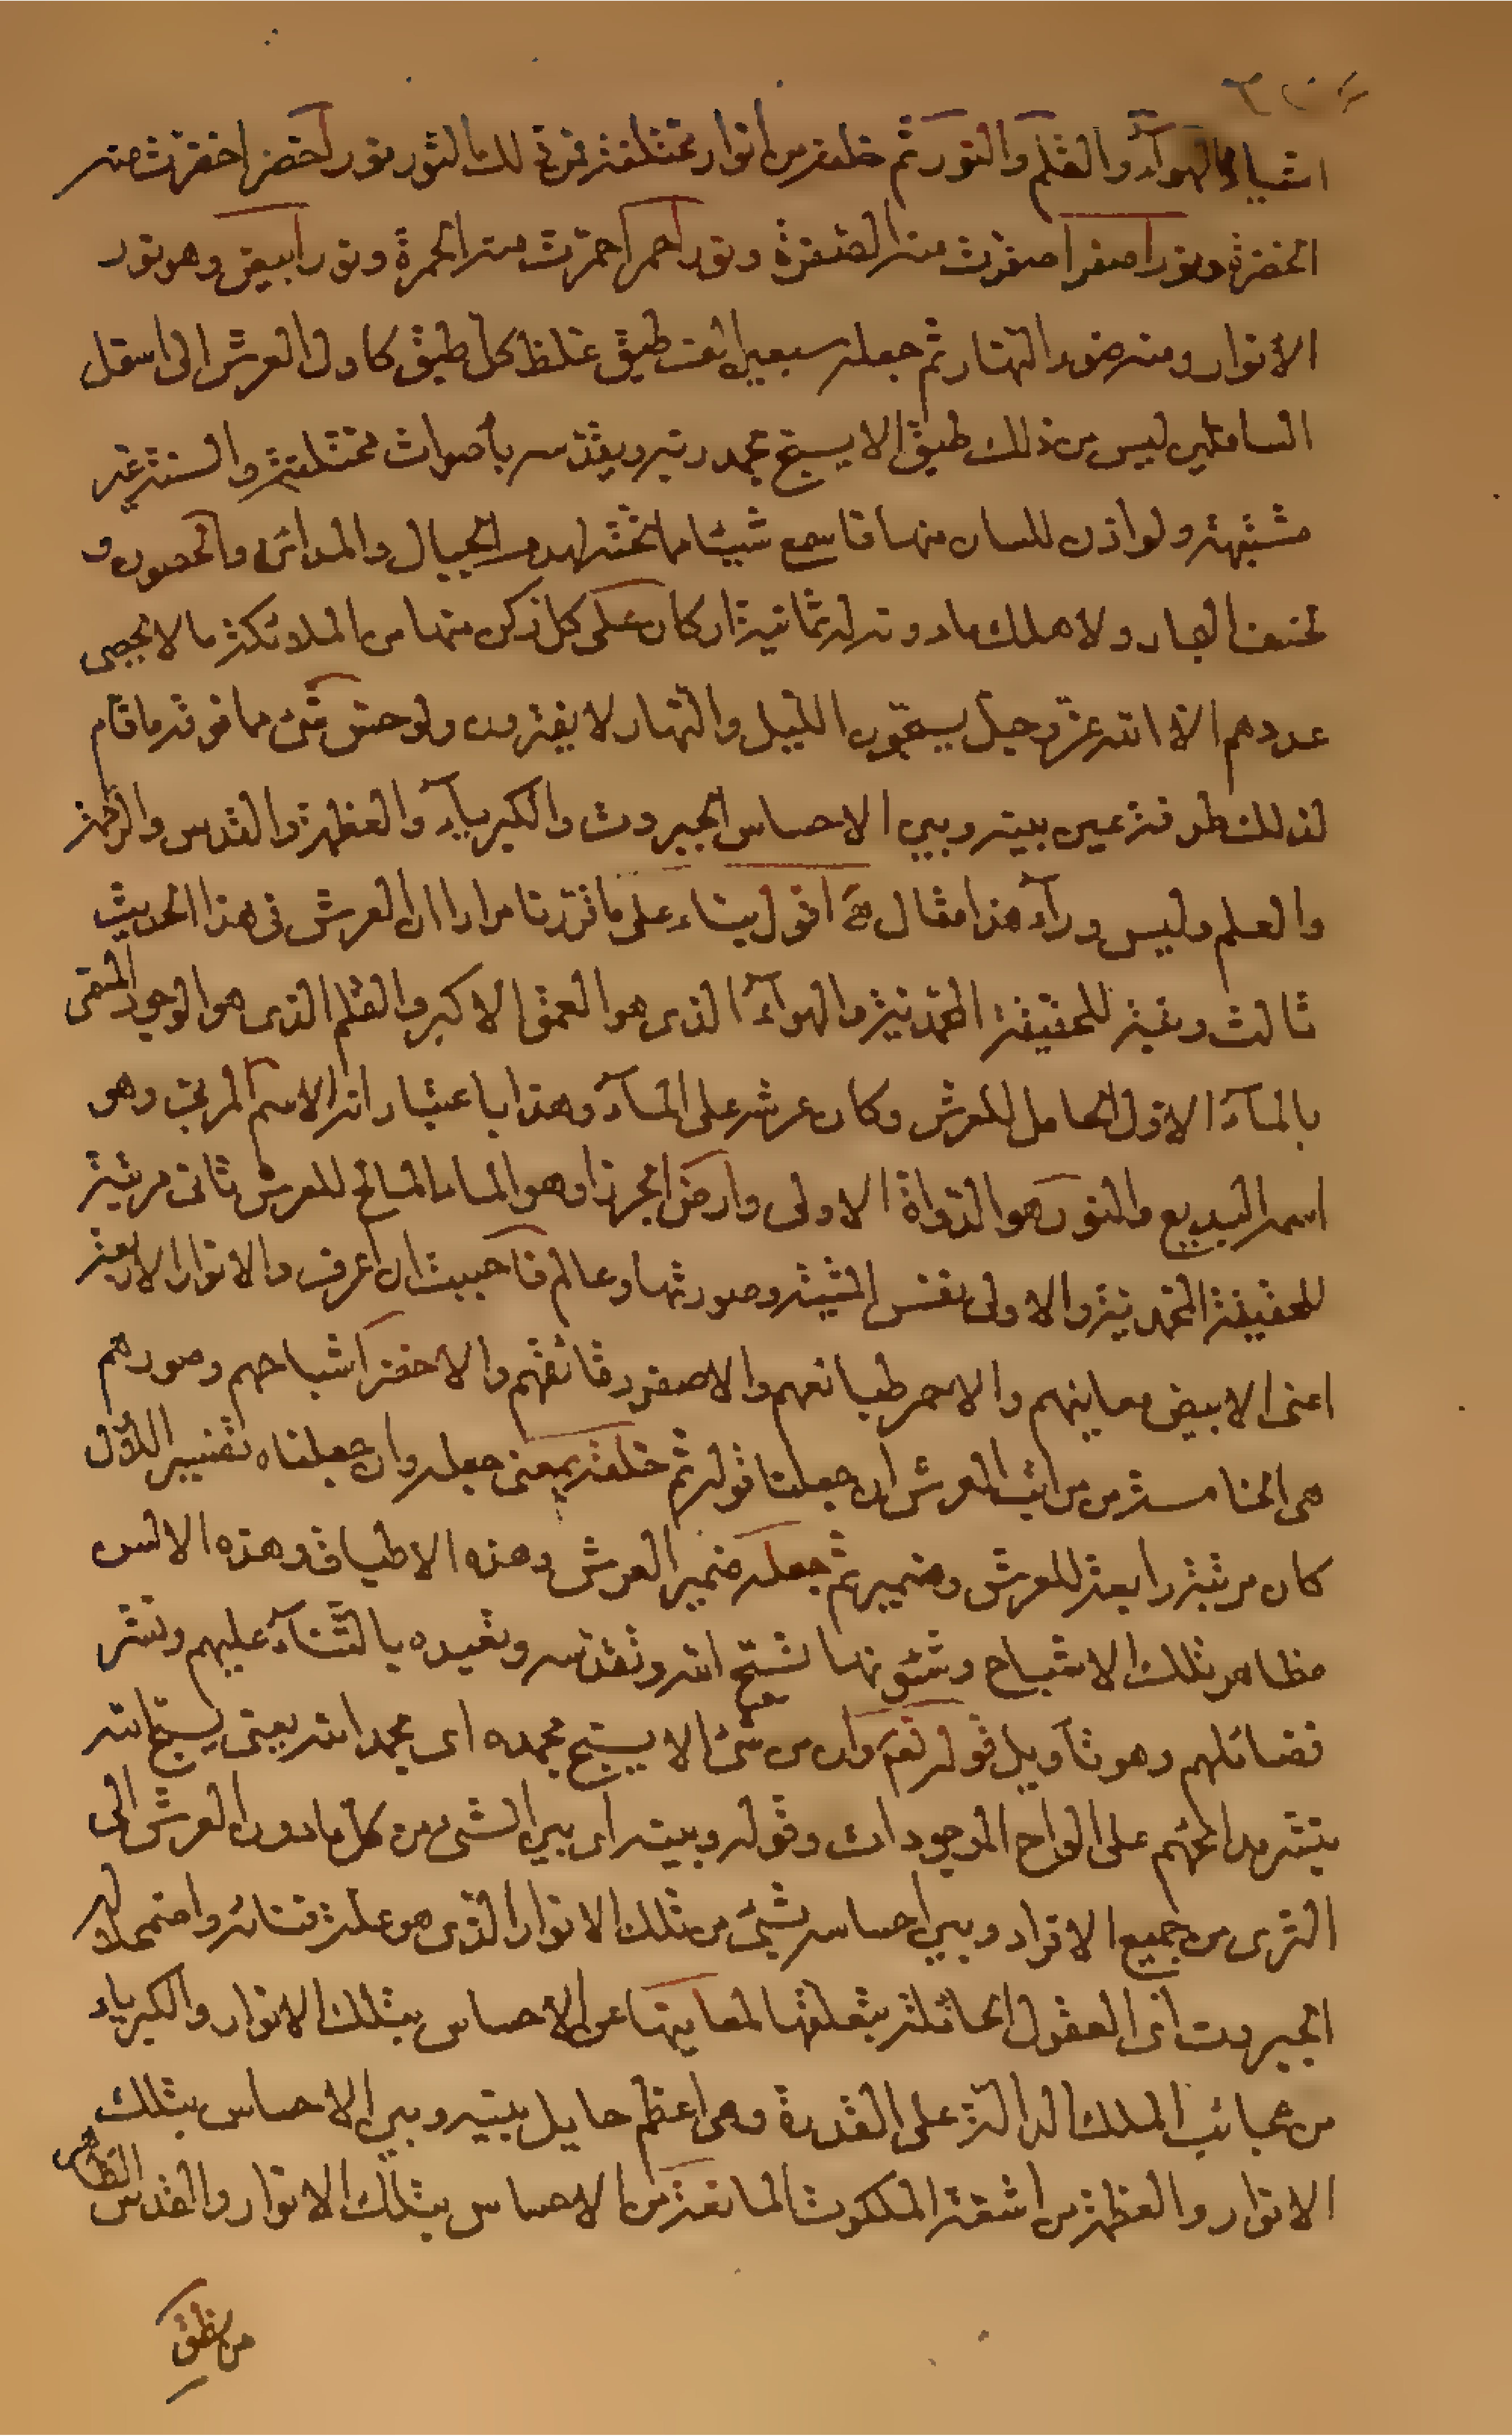 اشياء الهوآء والقلم والنور ثم خلقه من انوار مختلفة فمن ذلك النور نور اخضر اخضرت منه
الخضرة ونور اصفر اصفرت منه الصفرة ونور احمر احمرّت منه الحمرة ونور ابيض وهو نور
الأنوار ومنه ضوء النهار ثم جعله سبعين الف طبق غلظ كل طبق كاول العرش الى اسفل
السافلين ليس من ذلك طبق الا يسبح بحمد ربه ويقدّسه بأصوات مختلفة والسنة غير
مشتبهة ولو اذن للسان منها فاسمع شيئا مما تحته لهدم الجبال والمدائن والحصون و
لخسف البحار ولا هلك ما دونه له ثمانية اركان على كل ركن منها من الملائكة ما لا يحصى
عددهم الا الله عز وجل يسبحون الليل والنهار لا يفترون ولو حس شئ مما فوقه ما قام
لذلك طرفة عين بينه وبين الاحساس الجبروت والكبريآء والعظمة والقدس والرحمة
والعلم وليس ورآء هذا مقال اقول بناء على ما قررنا مرارا ان العرش فى هذا الحديث
ثالث رتبة للحقيقة المحمدية والهوآء الذى هو العمق الاكبر والقلم الذى هو الوجود
بالمآء الاول الحامل للعرش وكان عرشه على المآء وهذا باعتبار انه الاسم المربى وهو
اسمه البديع والنور هو الدواة الاولى وارض الجرز وهو الماء المالح للعرش ثانى مرتبة
للحقيقة المحمدية والاولى نفس المشية وصورتها وعالم فاحببت ان اعرف والانوار الاربعة
اعنى الابيض معاينهم والاحمر طبائعهم والاصفر رقائقهم والاخضر اشباحهم وصورهم
هى الخامسة من مراتب العرش ان جعلنا قوله ثم خلقه بمعنى جعله وان جعلناه تفسير اللأول
كان مرتبة رابعة للعرش وضمير ثم جعله ضمير العرش وهذه الاطباق وهذه الالسن
مظاهر تلك الاشباح وشئونها تسبح الله وتقدسه وتعبده بالثّنآء عليهم ونشر
فضائلهم وهو تأويل قوله تعم وان من شئ الا يسبح بحمده اى بحمد الله يعنى يسبح الله
بنشر مدائحهم على الواح الموجودات وقوله وبينه اى بين الشئ من كل ما دون العرش الى
الثرى من جميع الافراد وبين احساسه بشئ من تلك الانوار الذى هو علة فنائه واضمحلاله
الجبروت اى العقول الحائلة بتعلقها لمعاينها عن الاحساس بتلك الانوار والكبرياء
من عجائب الملك الدالة على القدرة وهى اعظم حايل بينه وبين الاحساس بتلك
الانوار والعظمة من اشعة الملكوت المانعة من الاحساس بتلك الانوار والقدس الظاهر